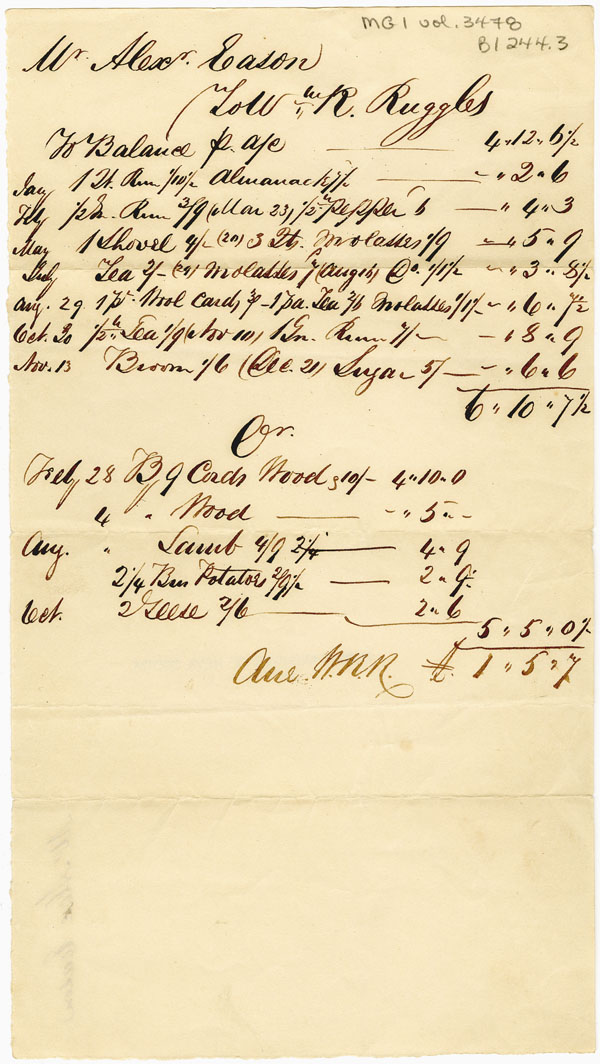 MG1 vol. 3478
B1244.3
Mr. Alexr. Eason
To Wm R. Ruggles
To Balance p. a/c 4 " 12 " 6 1/2
Jany 1 Qt. Rum 1/10 1/2 Almanack 7 1/2 — " 2 " 6
Feby 1/2 Gn. Rum 3/9 (Mar 23) 1/2 lb pepper 6 — " 4 " 3
May 1 Shovel 4/- (20) 3 Qt. Molasses 1/9 — " 5 " 9
July Tea 2/- (29) Molasses 7 (Aug 15) Do. 1/1 1/2 — " 3 " 8 1/2
Aug. 29 1 pr. Wool Cards 3/- 1 pa. Tea 2/6 Molasses 1/1 1/2 — " 6 " 7 1/2
Oct. 20 1/2 lb Tea 1/9 (Nov 10) 1 Gn. Rum 7/- — " 8 " 9
Nov. 13 Broom 1/6 (Dec. 21) Sugar 5/- — " 6 " 6
6 " 10 " 7 1/2
Cr.
Feby 28 By 9 Cords Wood @ 10/- 4 " 10 " 0
4 " Wood — " 5 " -
Aug. " Lamb 4/9 2 1/4 4 " 9
2 1/4 Bus Potatoes 2/9 1/2 2 " 9
Oct. 2 Geese 2/6 2 " 6
5 " 5 " 0 1/2
Due W.R.R. £ 1 " 5 " 7